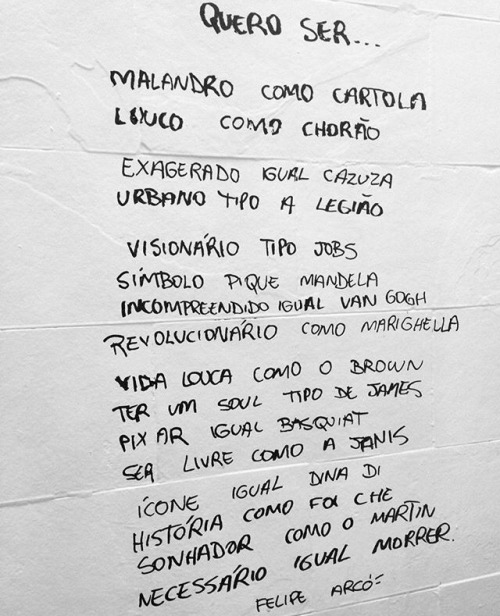 QUERO SER...
MALANDRO COMO CARTOLA
LOUCO COMO CHORÃO
EXAGERADO IGUAL CAZUZA
URBANO TIPO A LEGIÃO
VISIONÁRIO TIPO JOBS
SÍMBOLO PIQUE MANDELA
INCOMPREENDIDO IGUAL VAN GOGH
REVOLUCIONÁRIO COMO MARIGHELLA
VIDA LOUCA COMO O BROWN
TER UM SOUL TIPO DE JAMES
PIXAR IGUAL BASQUIAT
SER LIVRE COMO A JANIS
ÍCONE IGUAL DINA DI
HISTÓRIA COMO FOI CHE
SONHADOR COMO O MARTIN
NECESSÁRIO IGUAL MORRER.
FELIPE ARCÓ